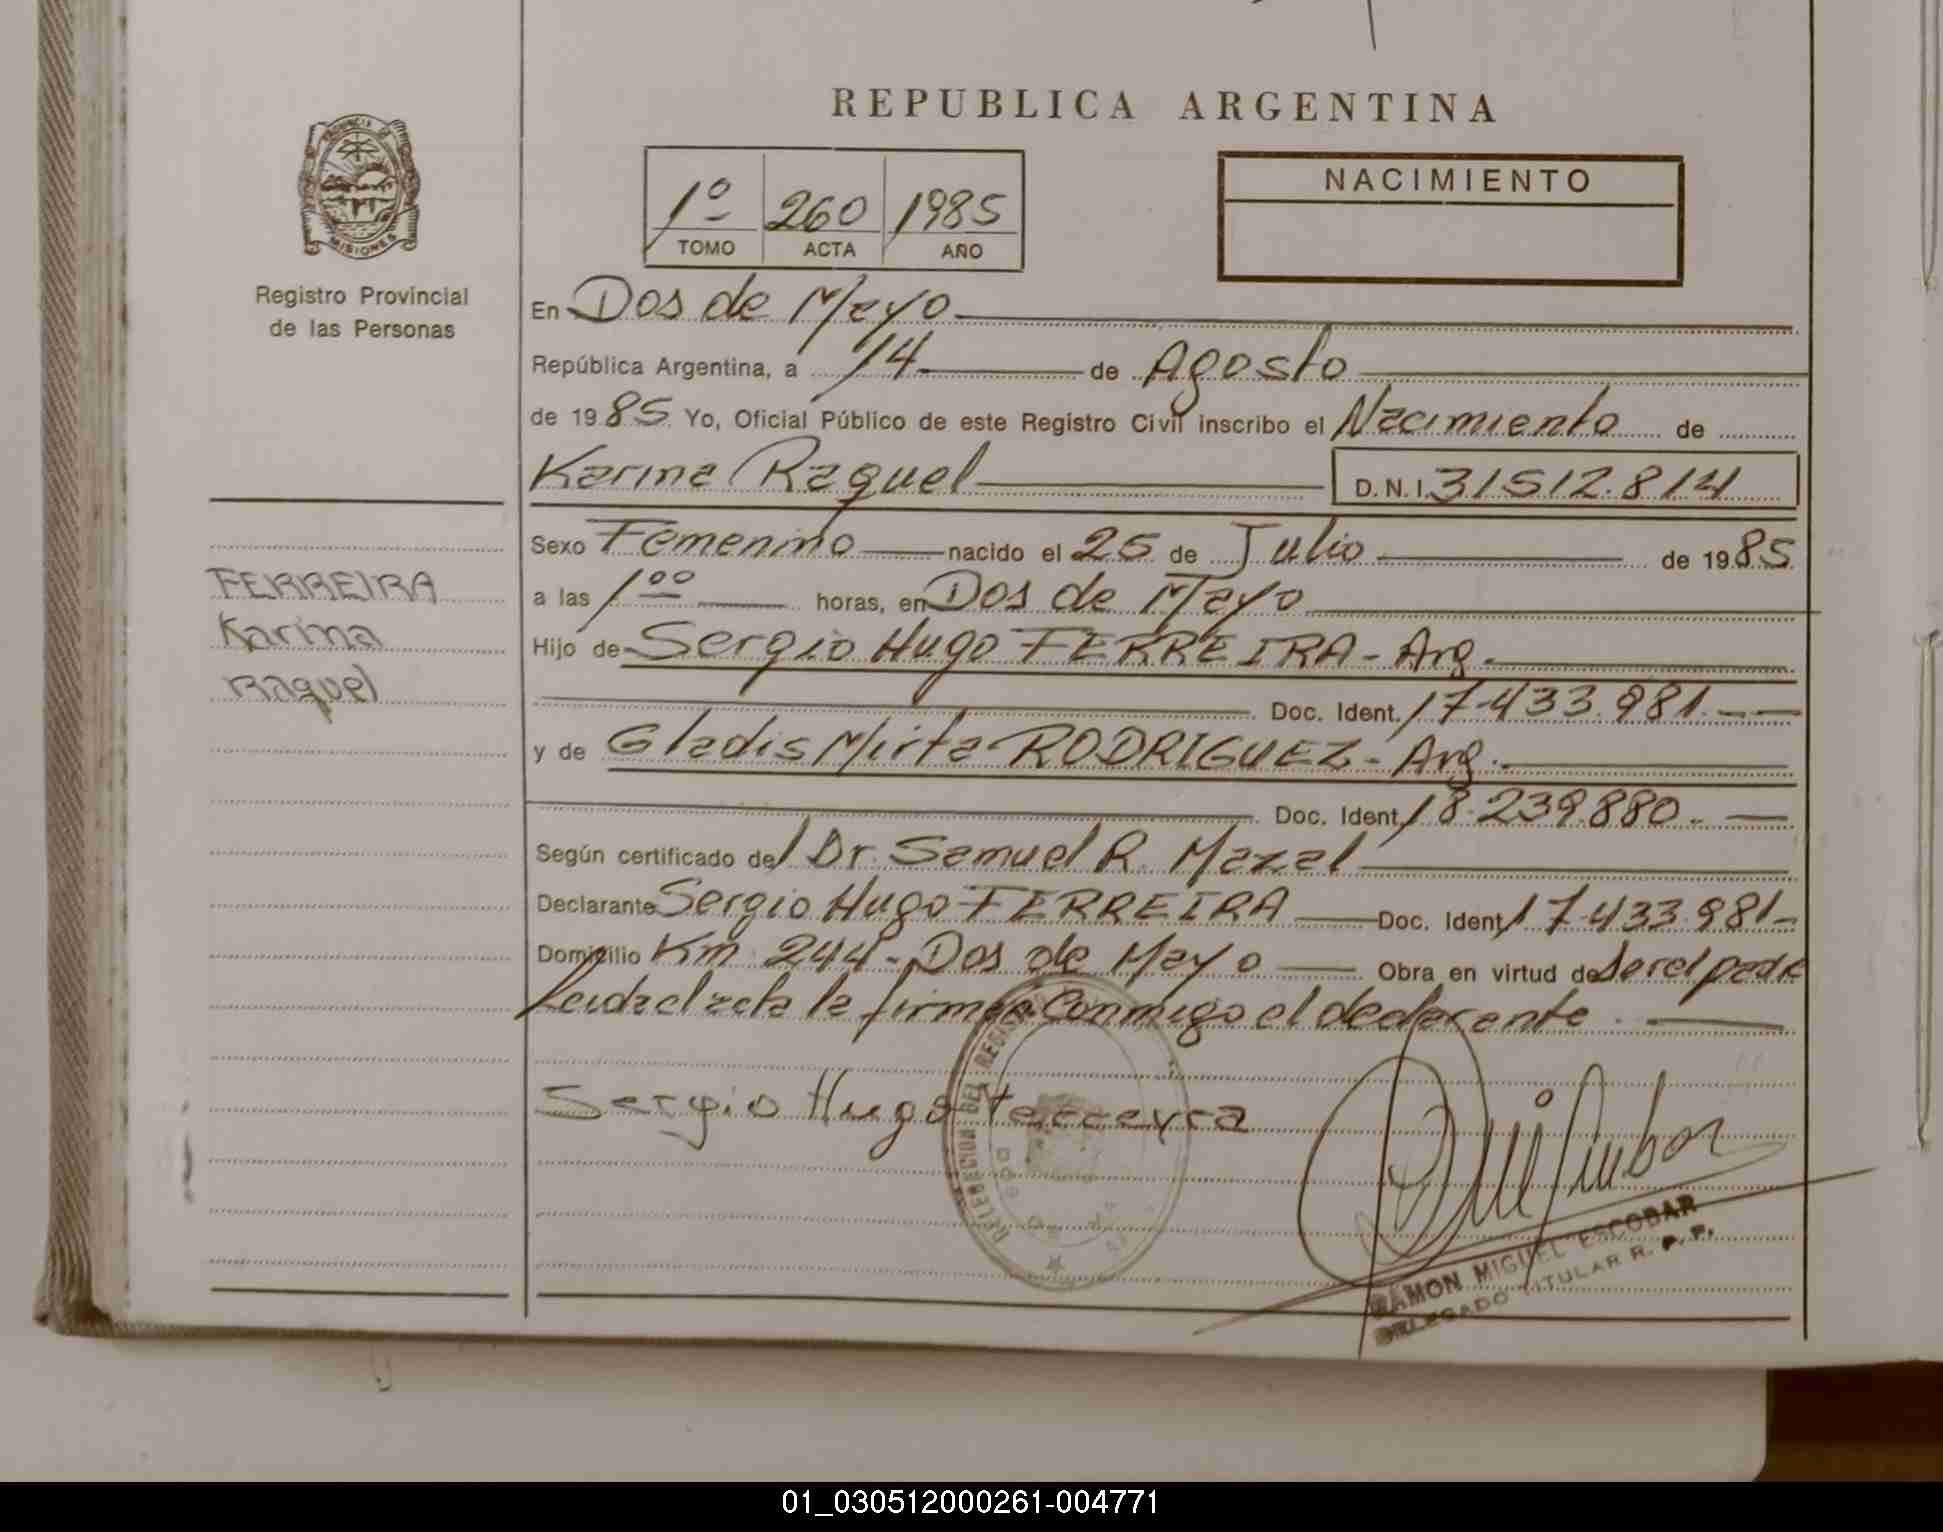 REPUBLICA ARGENTINA
PROVINCIA DE
MISIONES
Registro Provincial
de las Personas
1º 260 1985
TOMO ACTA AÑO
NACIMIENTO
En Dos de Mayo
República Argentina, a 14 de Agosto
de 1985 Yo, Oficial Público de este Registro Civil inscribo el Nacimiento de
Karina Raquel D.N.I. 31512.814
Sexo Femenino nacido el 25 de Julio de 1985
a las 1⁰⁰ horas, en Dos de Mayo
Hijo de Sergio Hugo FERREIRA - Arg.
Doc. Ident. 17.433.981.
y de Gladis Mirta RODRIGUEZ - Arg.
Doc. Ident. 18.239.880.
Según certificado del Dr. Samuel R. Mazal
Declarante Sergio Hugo FERREIRA Doc. Ident. 17.433.981-
Domicilio Km 244 - Dos de Mayo Obra en virtud de ser el padre
Leida el acta la firman Conmigo el declarante.
FERREIRA
Karina
Raquel
Sergio Hugo Ferreyra
DELEGACION DEL REGISTRO
DOS DE MAYO
RAMON MIGUEL ESCOBAR
DELEGADO TITULAR R. P. P.
01_030512000261-004771